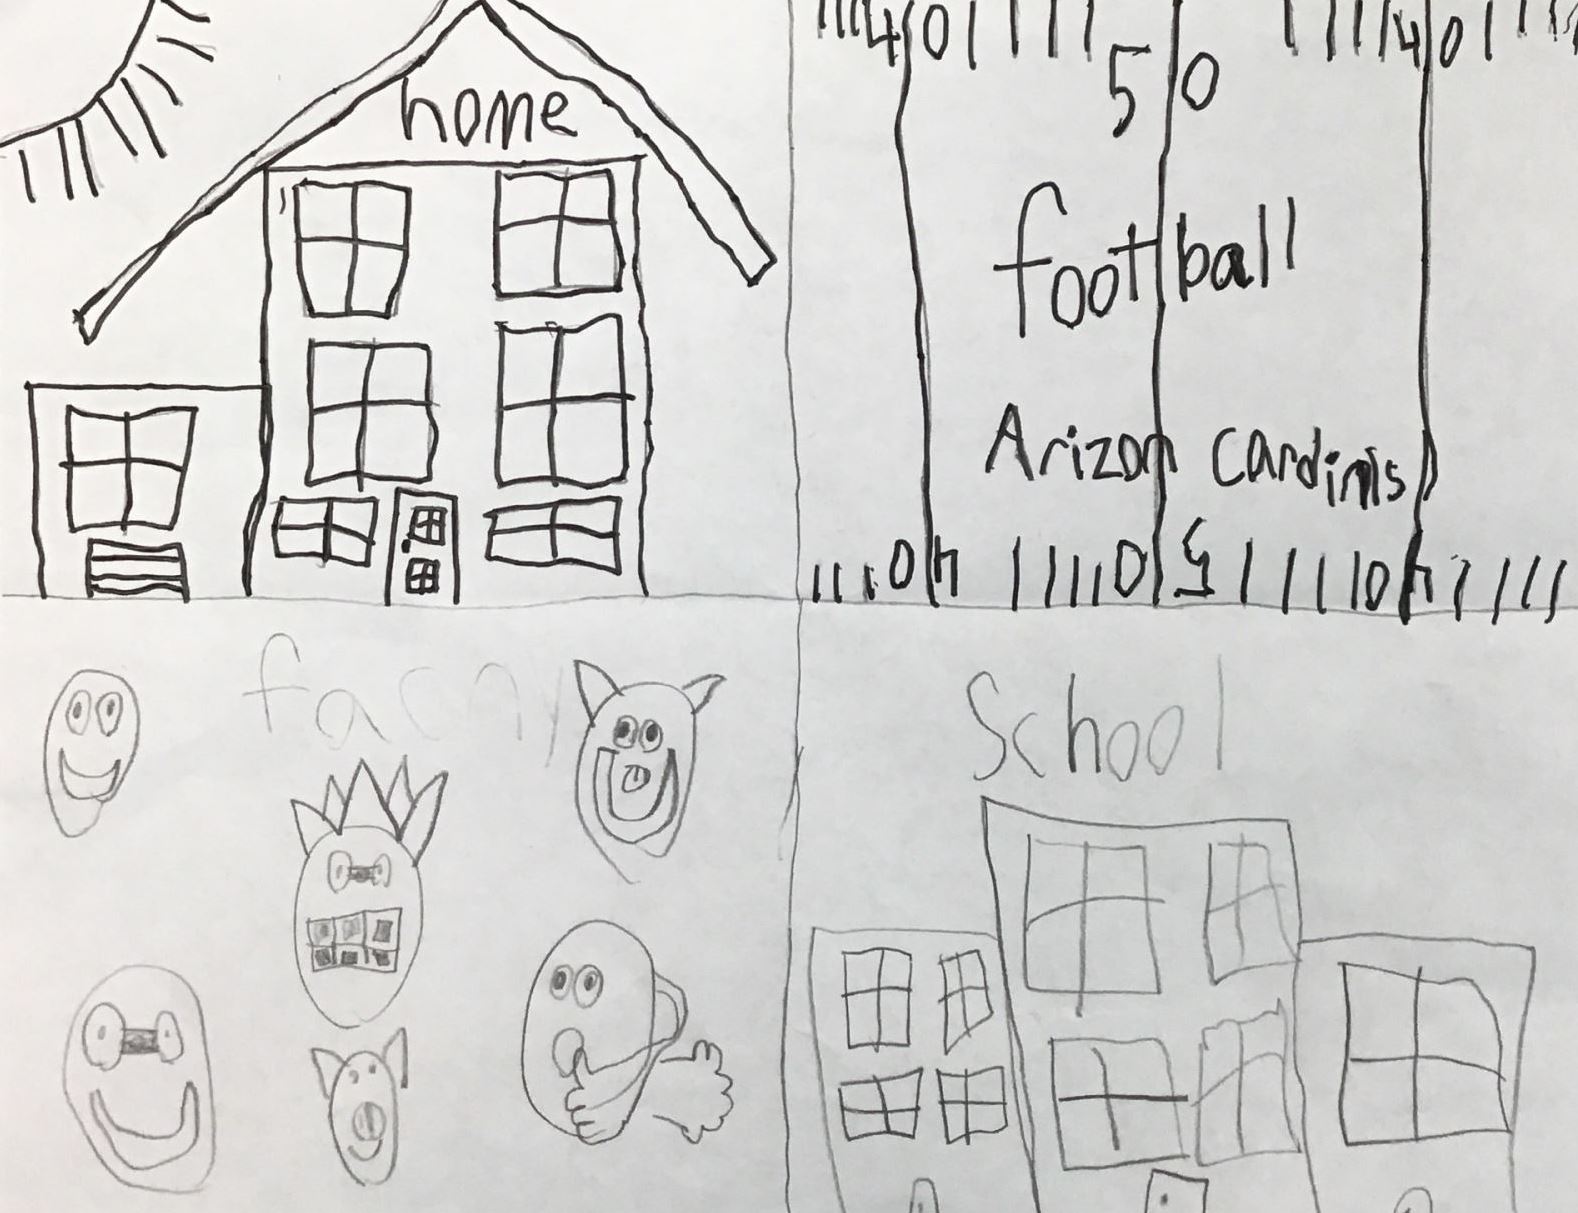 home
40 40
50
football
Arizon cardinls
40 50 40
School